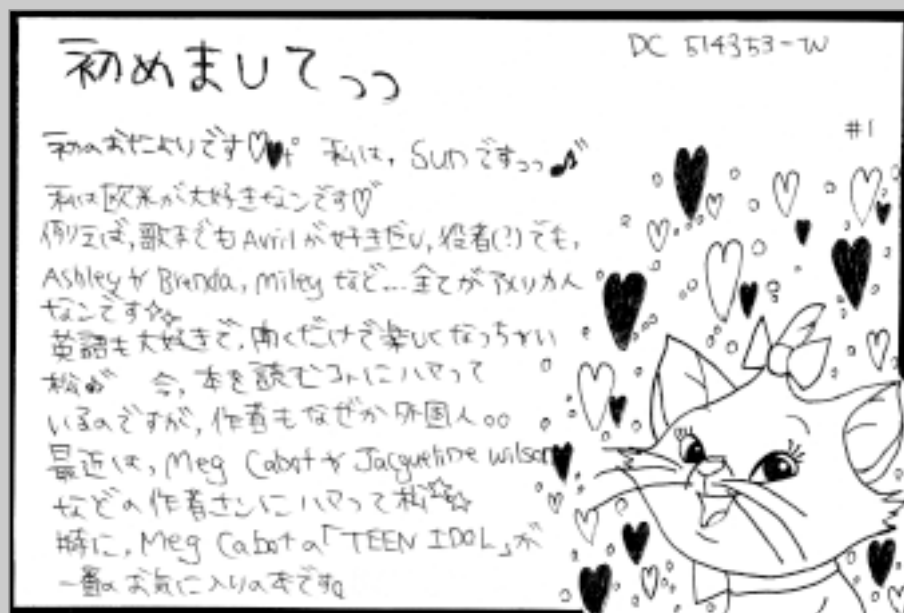 初めましてっっ
DC 514353-W
#1
初のおたよりです♡♥ 私は、Sunですっっ♪
私は欧米が大好きなンです♡
例えば、歌手でもAvrilが好きだし、役者(?)でも、
AshleyやBrenda、Mileyなど…全てがアメリカ人
なンです☆☆
英語も大好きで、聞くだけで楽しくなっちゃい
松 今、本を読むコトにハマって
いるのですが、作者もなぜか外国人。。
最近は、Meg CabotやJacqueline Wilson
などの作者さンにハマって松☆☆
特に、Meg Cabotの「TEEN IDOL」が
一番のお気に入りの本です。